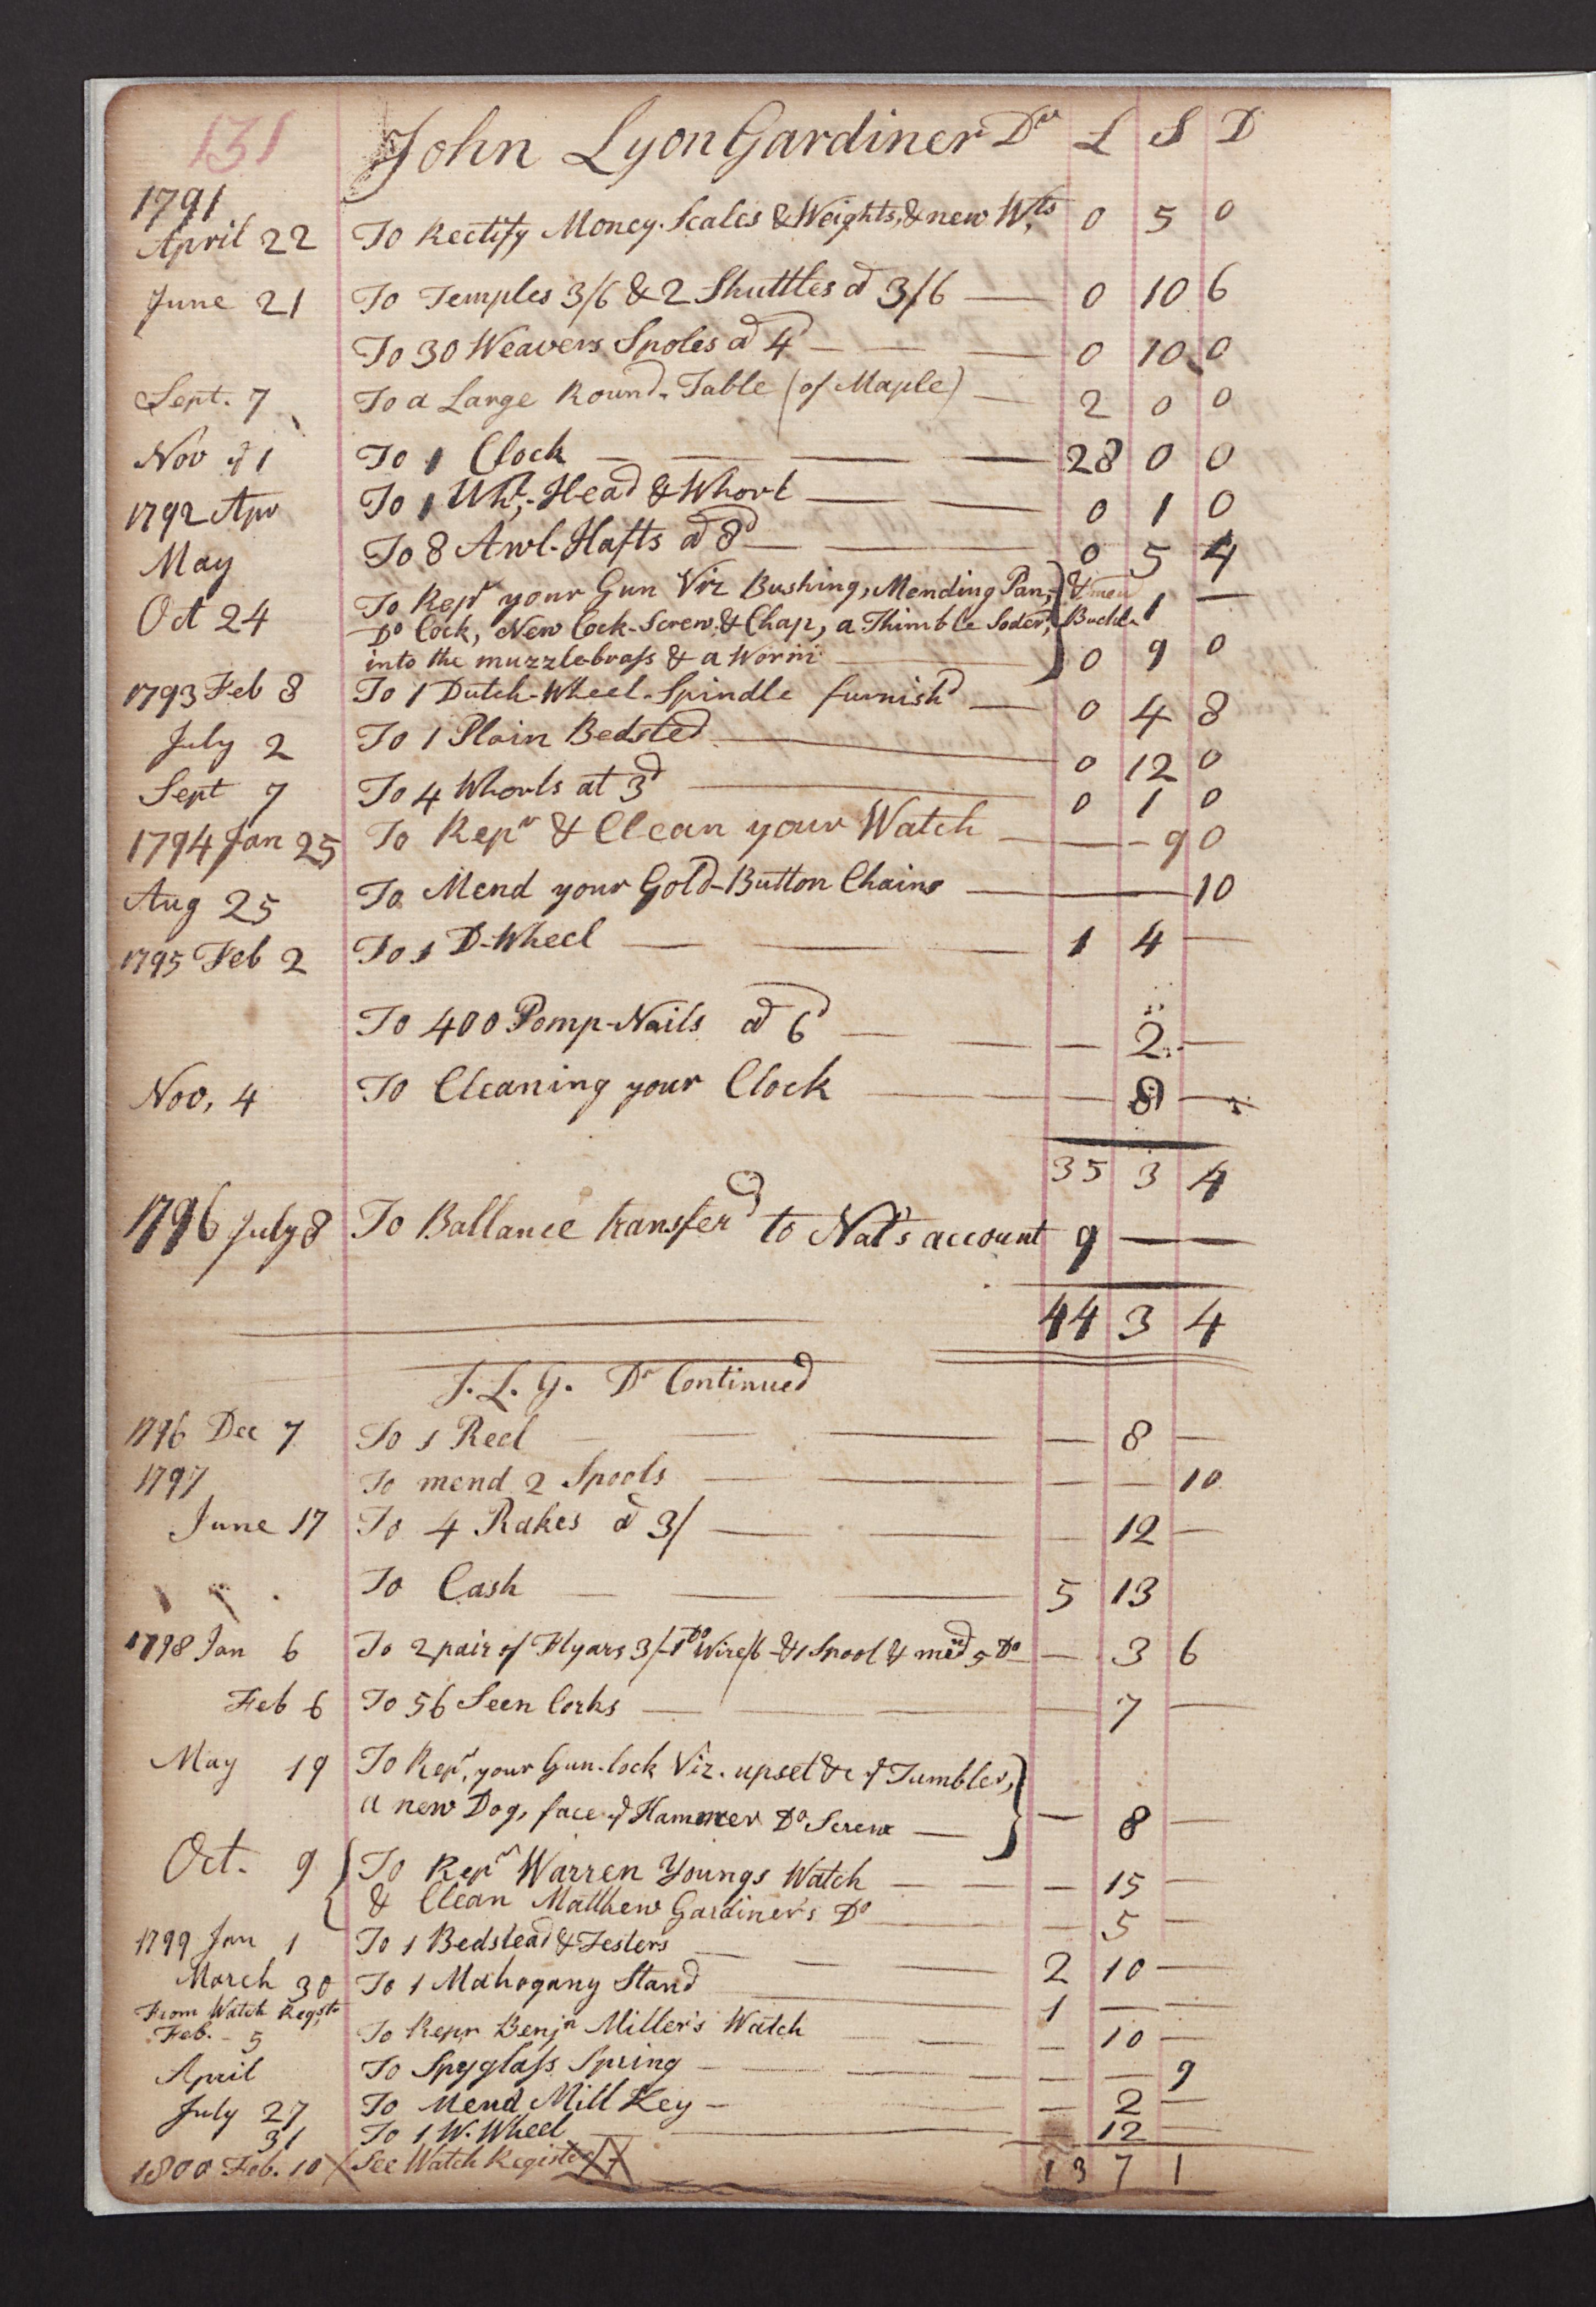 131 John Lyon Gardiner Dr L S D
1791
April 22 To Rectify Money-Scales & Weights, & new Wts 0 5 0
June 21 To Temples 3/6 & 2 Shuttles a 3/6 0 10 6
To 30 Weavers Spoles a 4d 0 10 0
Sept. 7 To a Large Round-Table (of Maple) 2 0 0
Nov 1 To 1 Clock 28 0 0
1792 Apr To 1 Whl-Head & Whorl 0 1 0
May To 8 Awl-Hafts a 8d 0 5 4
Oct 24 To Repr your Gun Viz Bushing, Mending Pan, & mend
Do Cock, New Cock-Screw & Chap, a Thimble Soderd Buckle 1 —
into the muzzle brass & a Worm 0 9 0
1793 Feb 8 To 1 Dutch-Wheel-Spindle furnishd 0 4 8
July 2 To 1 Plain Bedsted 0 12 0
Sept 7 To 4 Whorls at 3d 0 1 0
1794 Jan 25 To Repr & Clean your Watch — 9 0
Aug 25 To Mend your Gold-Button Chains — 10
1795 Feb 2 To 1 D-Wheel 1 4 —
To 400 Pomp-Nails a 6d — 2 —
Nov, 4 To Cleaning your Clock — 8 —
35 3 4
1796 July 8 To Ballance transferd to Nat's account 9 — —
44 3 4
J. L. G. Dr Continued
1796 Dec 7 To 1 Reel — 8 —
1797 To mend 2 Spools — — 10
June 17 To 4 Rakes a 3/ — 12 —
To Cash 5 13
1798 Jan 6 To 2 pair of Flyars 3/- 1 Do Wire /6 - & 1 Spool & mend 5 Do — 3 6
Feb 6 To 56 Seen Corks — 7 —
May 19 To Repr, your Gun-lock Viz. upset &c Tumbler,
a new Dog, face Hammer Do Screw — 8 —
Oct. 9 To Repr Warren Youngs Watch — 15 —
& Clean Matthew Gardiner's Do — 5 —
1799 Jan 1 To 1 Bedstead & Testers 2 10 —
March 30 To 1 Mahogany Stand 1 — —
From Watch Regstr
Feb. - 5 To Repr Benjn Miller's Watch — 10 —
April To Spyglass Spring — — 9
July 27 To Mend Mill Key — 2 —
31 To 1 W. Wheel 12 —
1800 Feb. 10 See Watch Register 13 7 1